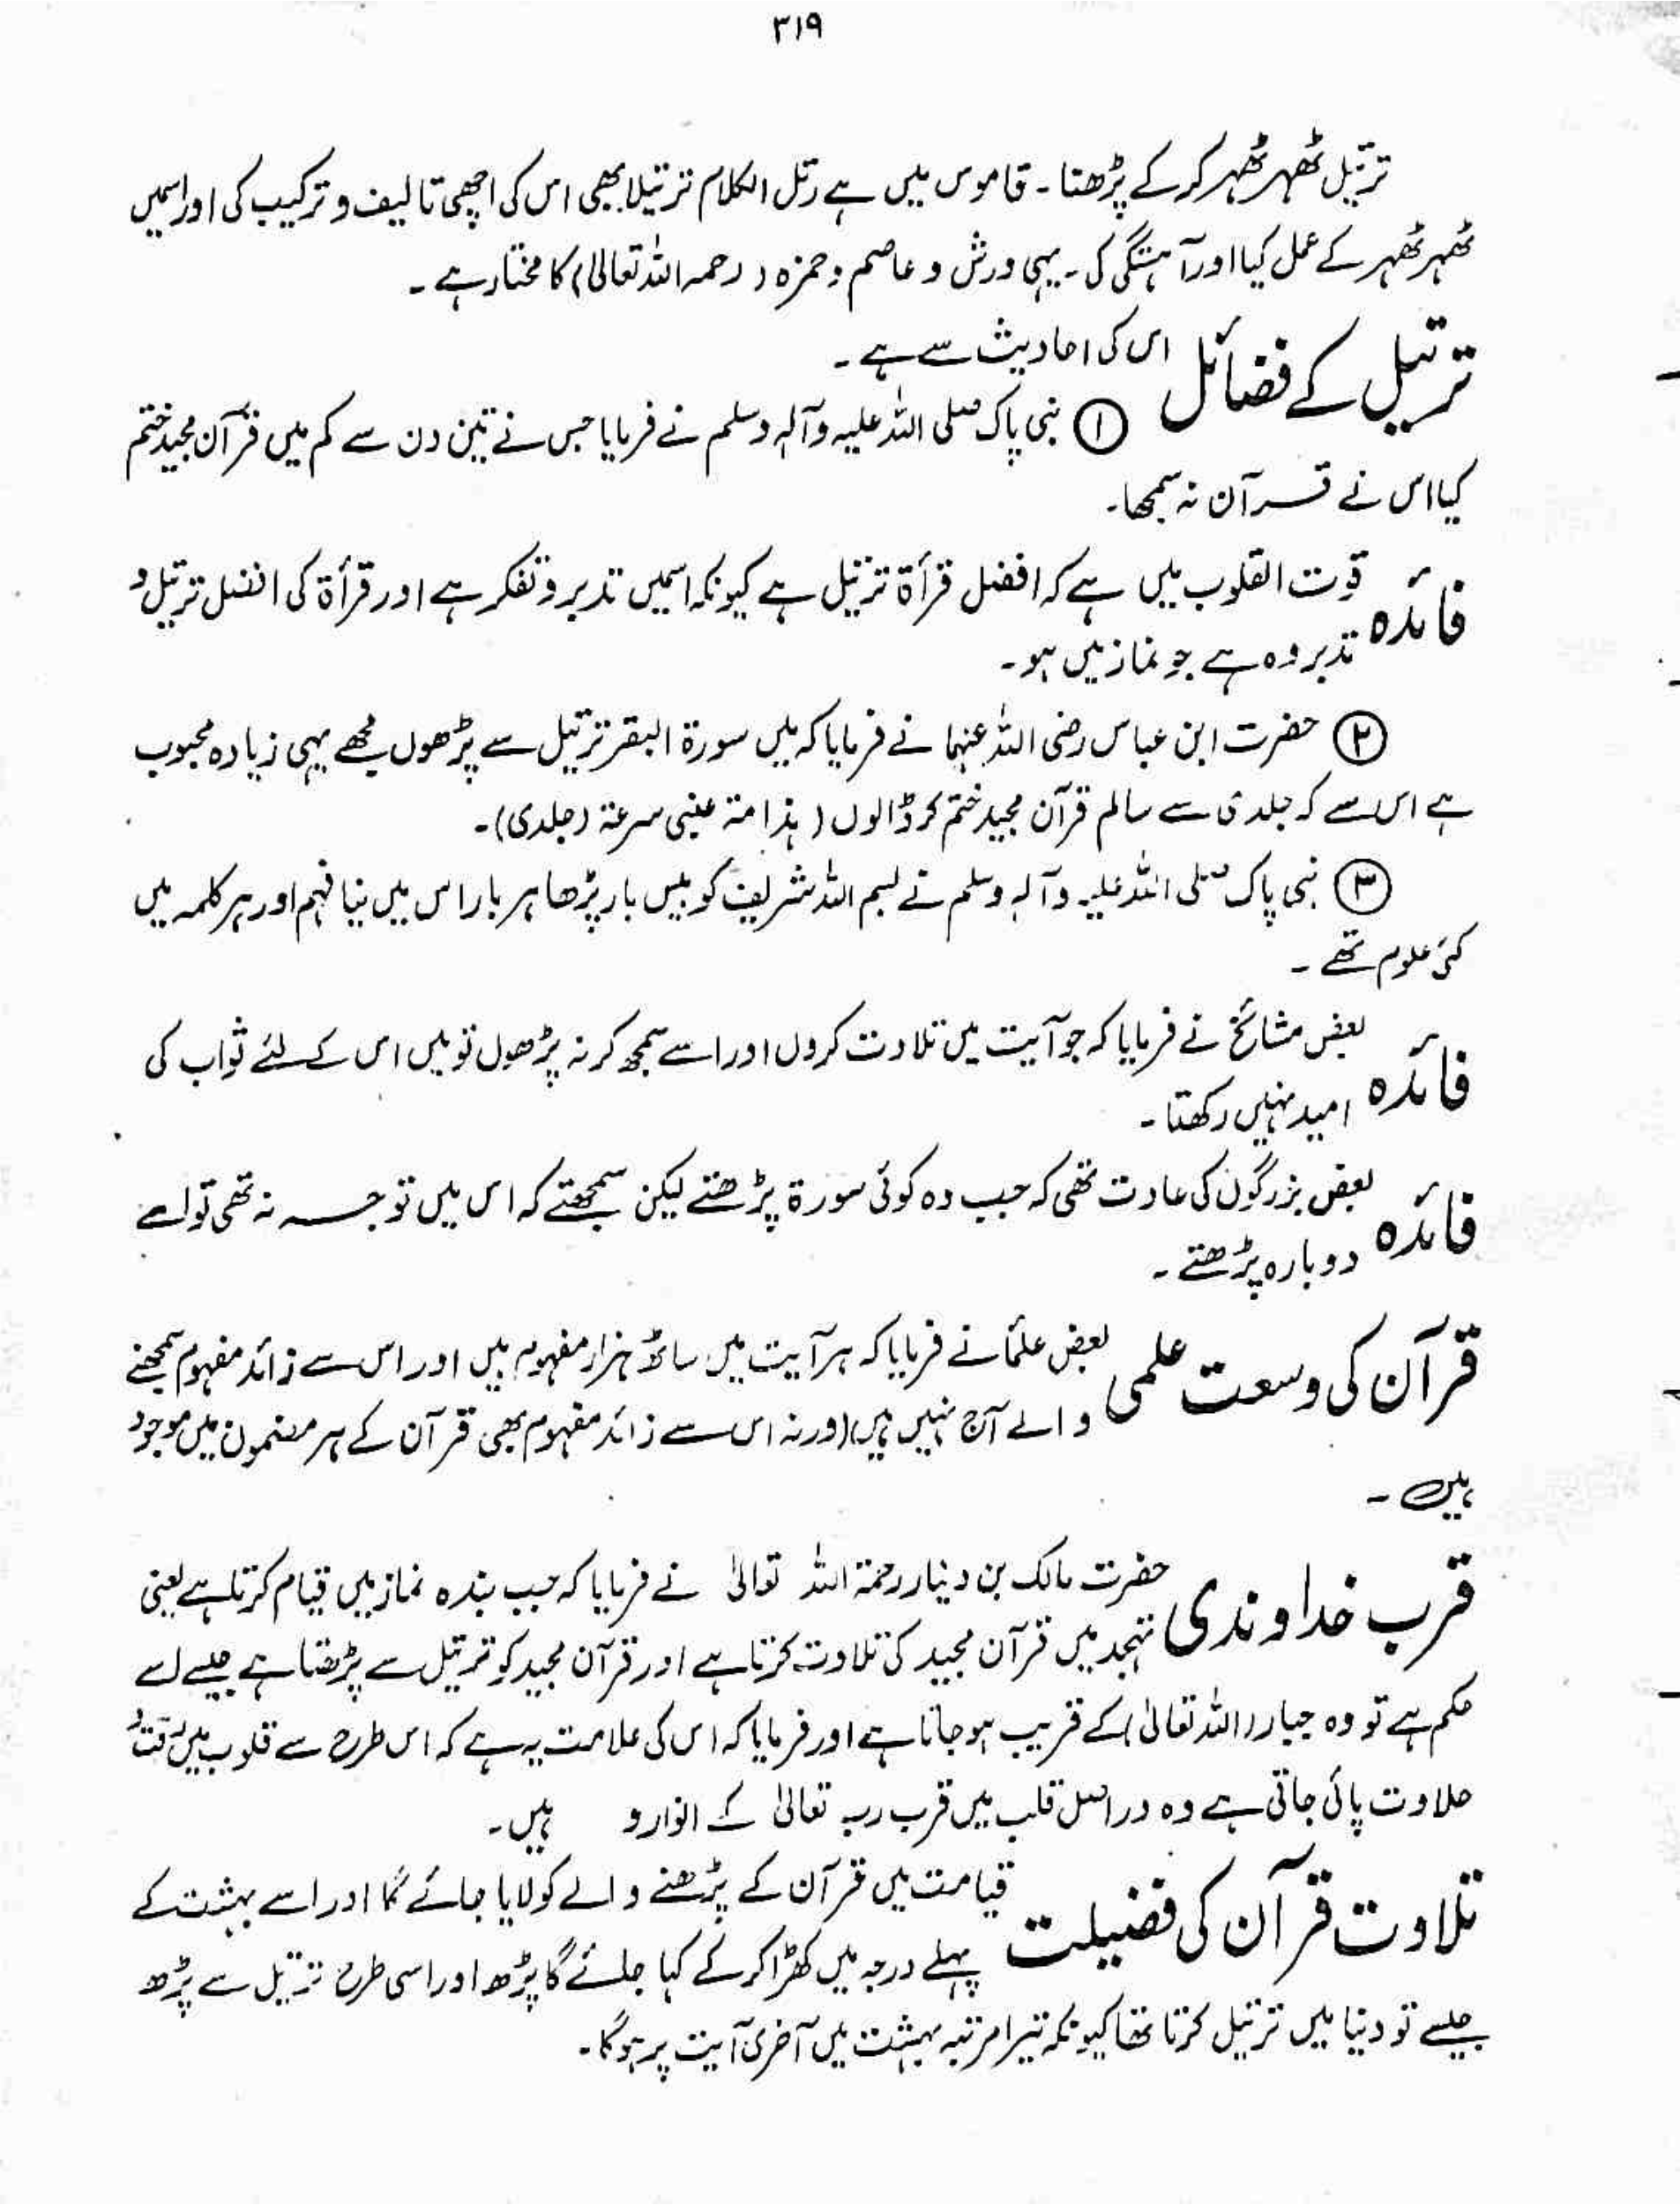 ۳۱۹
ترتیل ٹھہر ٹھہر کر کے پڑھنا۔ قاموس میں ہے رتل الکلام ترتیلا بھی اس کی اچھی تالیف و ترکیب کی اور اسمیں
ٹھہر ٹھہر کے عمل کیا اور آہستگی کی۔ یہی ورش و عاصم و حمزہ (رحمہ اللہ تعالیٰ) کا مختار ہے۔
ترتیل کے فضائل اس کی احادیث سے ہے۔
① نبی پاک صلی اللہ علیہ وآلہ وسلم نے فرمایا جس نے تین دن سے کم میں قرآن مجید ختم
کیا اس نے قرآن نہ سمجھا۔
فائدہ قوت القلوب میں ہے کہ افضل قرأۃ ترتیل ہے کیونکہ اسمیں تدبر و تفکر ہے اور قرأۃ کی افضل ترتیل و
تدبر وہ ہے جو نماز میں ہو۔
② حضرت ابن عباس رضی اللہ عنہما نے فرمایا کہ میں سورۃ البقر ترتیل سے پڑھوں مجھے یہی زیادہ محبوب
ہے اس سے کہ جلدی سے سالم قرآن مجید ختم کر ڈالوں (ہذا منہ عنبی سرعۃ (جلدی)۔
③ نبی پاک صلی اللہ علیہ وآلہ وسلم نے بسم اللہ شریف کو بیس بار پڑھا ہر بار اس میں نیا فہم اور ہر کلمہ میں
کئی علوم تھے۔
فائدہ بعض مشائخ نے فرمایا کہ جو آیت میں تلاوت کروں اور اسے سمجھ کر نہ پڑھوں تو میں اس کے لئے ثواب کی
امید نہیں رکھتا۔
فائدہ بعض بزرگوں کی عادت تھی کہ جب وہ کوئی سورۃ پڑھتے لیکن سمجھتے کہ اس میں توجہ نہ تھی تو اسے
دوبارہ پڑھتے۔
قرآن کی وسعت علمی بعض علمأ نے فرمایا کہ ہر آیت میں ساٹھ ہزار مفہوم ہیں اور اس سے زائد مفہوم سمجھنے
والے آج نہیں ہیں (ورنہ اس سے زائد مفہوم بھی قرآن کے ہر مضمون میں موجود
ہیں۔
قرب خداوندی حضرت مالک بن دینار رحمۃ اللہ تعالیٰ نے فرمایا کہ جب بندہ نماز میں قیام کرتا ہے یعنی
تہجد میں قرآن مجید کی تلاوت کرتا ہے اور قرآن مجید کو ترتیل سے پڑھتا ہے جیسے اسے
حکم ہے تو وہ جبار (اللہ تعالیٰ) کے قریب ہو جاتا ہے اور فرمایا کہ اس کی علامت یہ ہے کہ اس طرح سے قلوب میں رقت و
حلاوت پائی جاتی ہے وہ دراصل قلب میں قرب رب تعالیٰ کے انوار و ہیں۔
تلاوت قرآن کی فضیلت قیامت میں قرآن کے پڑھنے والے کو لایا جائے گا اور اسے بہشت کے
پہلے درجہ میں کھڑا کر کے کہا جائے گا پڑھ اور اسی طرح ترتیل سے پڑھ
جیسے تو دنیا میں ترتیل کرتا تھا کیونکہ تیرا مرتبہ بہشت میں آخری آیت پر ہوگا۔